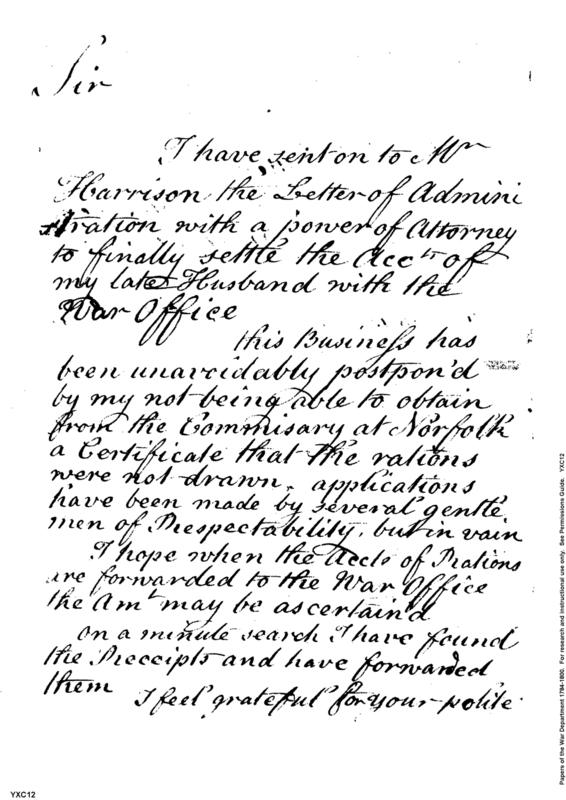 Sir
I have sent on to Mr
Harrison the Letter of Admini
stration with a power of Attorney
to finally settle the Accts of
my late Husband with the
War Office
this Business has
been unavoidably postpon'd
by my not being able to obtain
from the Commisary at Norfolk
a Certificate that the rations
were not drawn. applications
have been made by several gentle
men of Respectability, but in vain
I hope when the Accts of Rations
are forwarded to the War Office
the Amt may be ascertain'd
on a minute search I have found
the Receipts and have forwarded
them
I feel grateful for your polite
Papers of the War Department 1784-1800. For research and instructional use only. See Permissions Guide. YXC12
YXC12